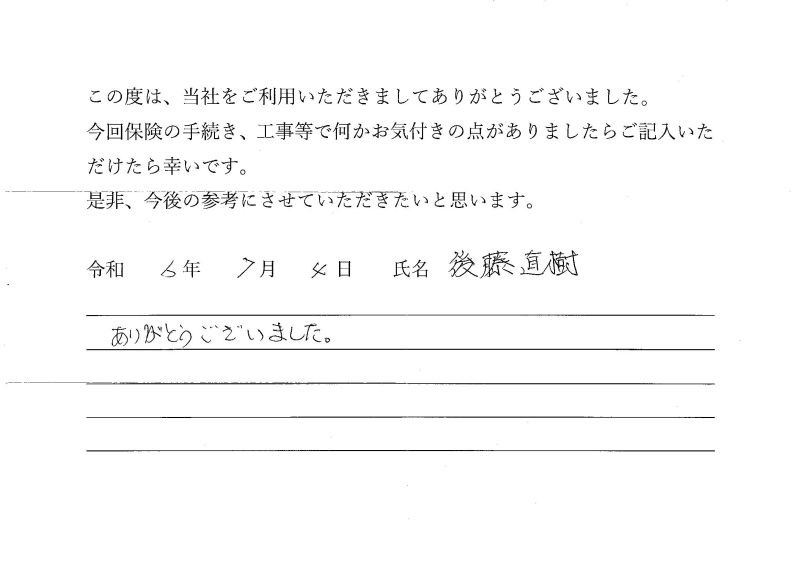 この度は、当社をご利用いただきましてありがとうございました。
今回保険の手続き、工事等で何かお気付きの点がありましたらご記入いた
だけたら幸いです。
是非、今後の参考にさせていただきたいと思います。
令和 6年 7月 4日 氏名 後藤直樹
ありがとうございました。